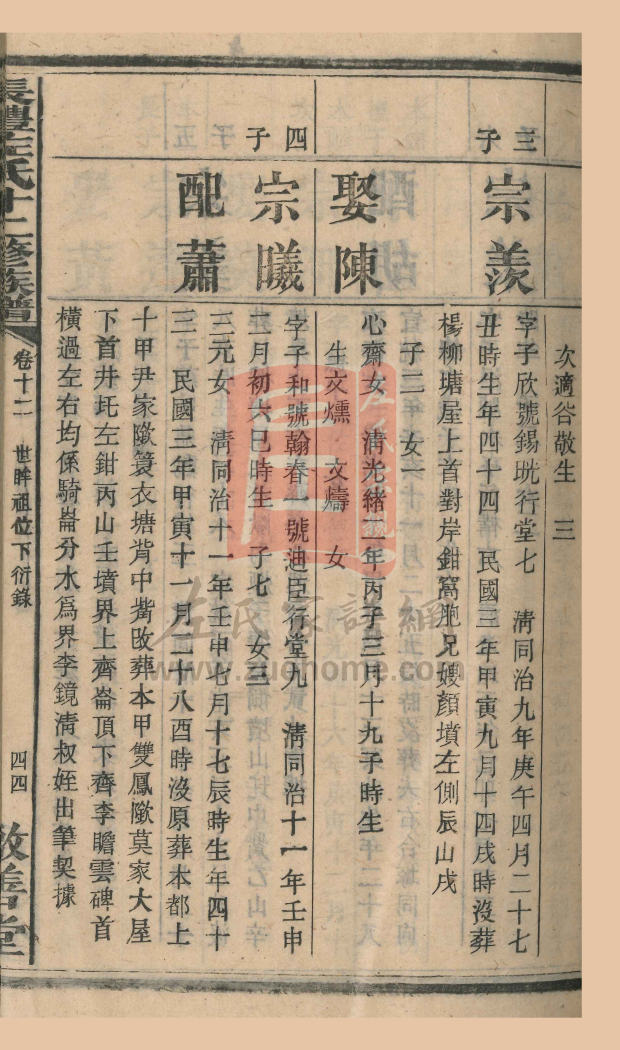 次適谷敬生　三
三子
宗羨
字子欣號錫珖行堂七　清同治九年庚午四月二十七
丑時生年四十四　民國三年甲寅九月十四戌時沒葬
楊柳塘屋上首對岸鉗窩胞兄嫂顏墳左側辰山戌
子二　女一
娶陳
心齋女　清光緒二年丙子三月十九子時生
生文燻　文燽　女
四子
宗曦
字子和號翰春　號迪臣行堂九　清同治十一年壬申
二月初六巳時生　子七　女三
配蕭
三元女　清同治十一年壬申七月十七辰時生年四十
三　民國三年甲寅十一月二十八酉時沒原葬本都上
十甲尹家隞簑衣塘背中嘴改葬本甲雙鳳隞莫家大屋
下首井圫左鉗丙山壬墳界上齊崙頂下齊李瞻雲碑首
橫過左右均係騎崙分水爲界李鏡清叔姪出筆契據
長澧左氏十二修族譜
卷十二
世眸祖位下衍錄
四四
敦善堂
左氏家譜網
www.zuohome.com